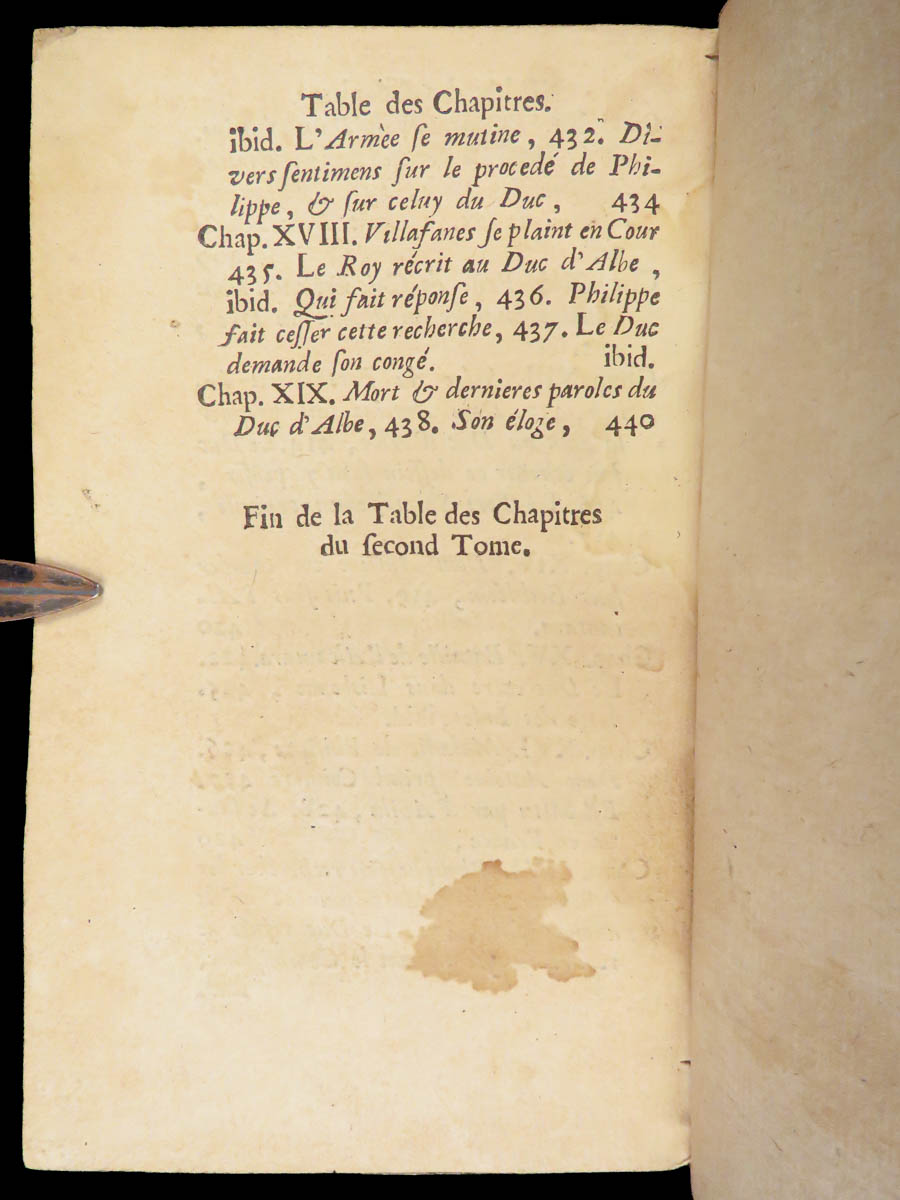 Table des Chapitres.
ibid. L'Armèe ſe mutine, 432. Di-
vers ſentimens ſur le procedé de Phi-
lippe, & ſur celuy du Duc, 434
Chap. XVIII. Villafanes ſe plaint en Cour
435. Le Roy récrit au Duc d'Albe,
ibid. Qui fait réponſe, 436. Philippe
fait ceſſer cette recherche, 437. Le Duc
demande ſon congé. ibid.
Chap. XIX. Mort & dernieres paroles du
Duc d'Albe, 438. Son éloge, 440
Fin de la Table des Chapitres
du ſecond Tome.